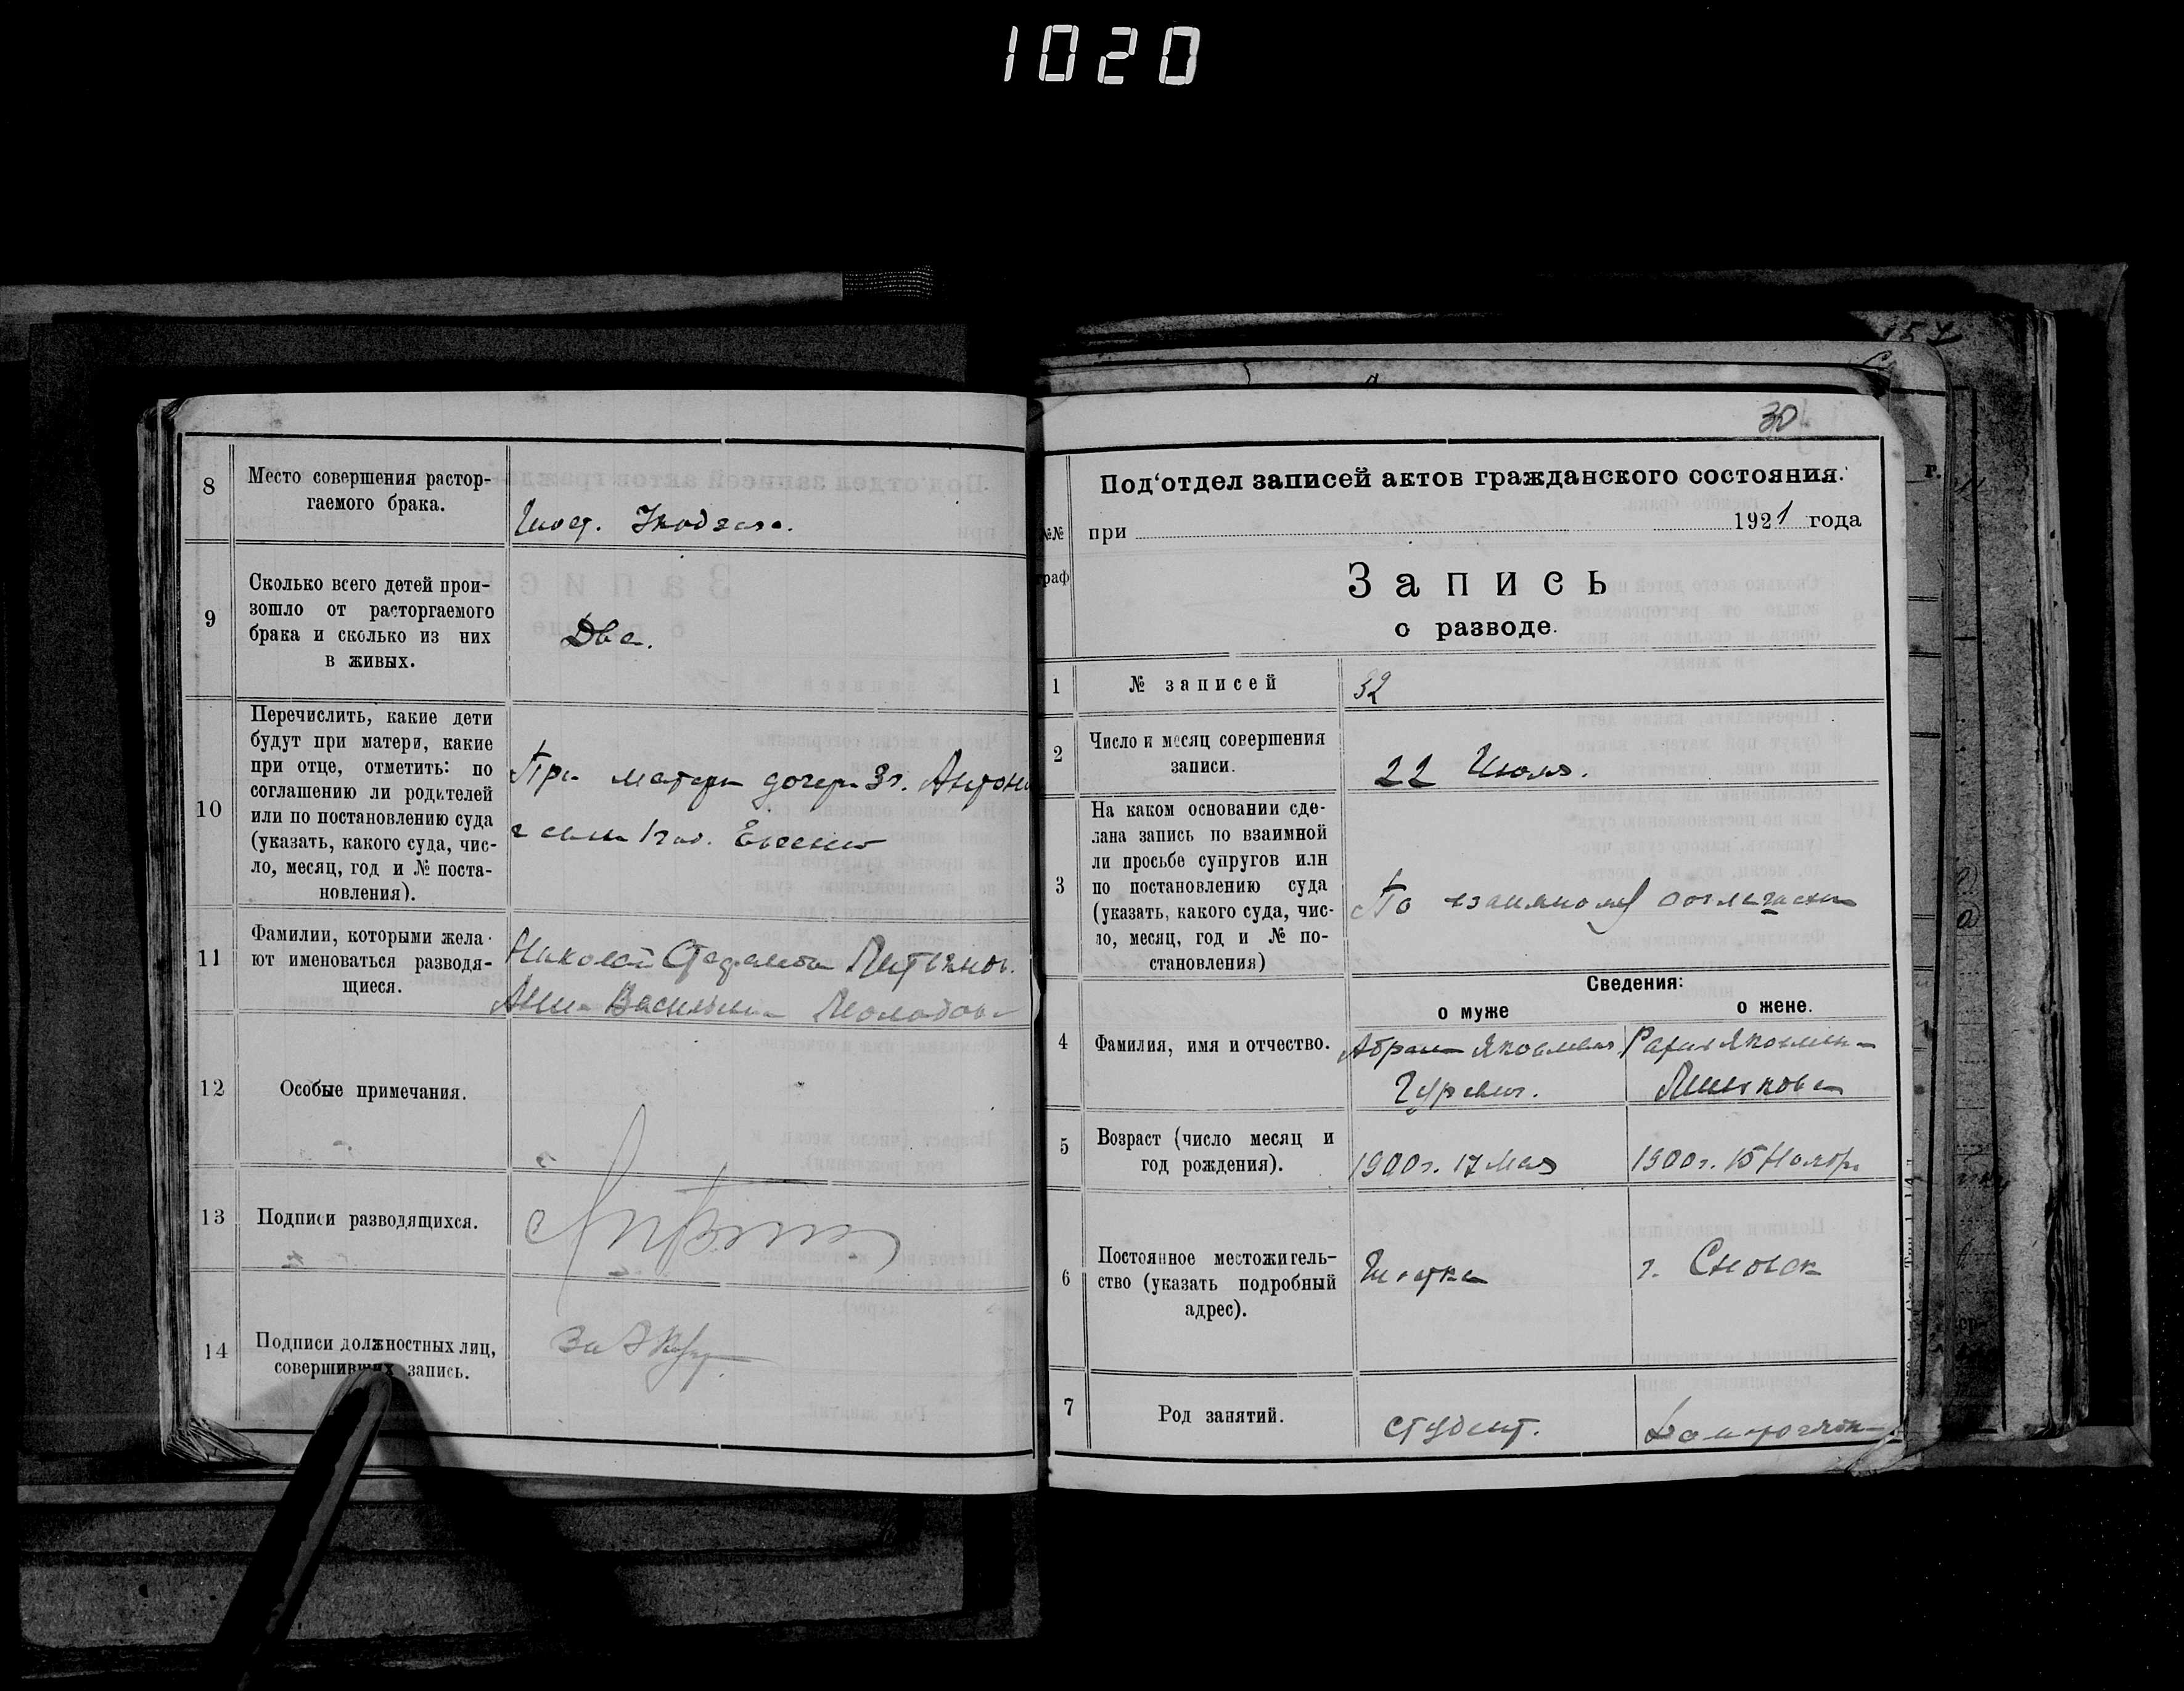 1020
8
Место совершения растор-
гаемого брака.
9
Сколько всего детей прои-
зошло от расторгаемого
брака и сколько из них
в живых.
Два.
10
Перечислить, какие дети
будут при матери, какие
при отце, отметить: по
соглашению ли родителей
или по постановлению суда
(указать, какого суда, чис-
ло, месяц, год и № поста-
новления).
При матери дочери 3 г.
11
Фамилии, которыми жела-
ют именоваться разводя-
щиеся.
Николай
Анна Васильевна
12
Особые примечания.
13
Подписи разводящихся.
14
Подписи должностных лиц,
совершивших запись.
30
№№
граф
Под'отдел записей актов гражданского состояния.
при 1921 года
Запись
о разводе.
1
№ записей
32
2
Число и месяц совершения
записи.
22 Июля.
3
На каком основании сде-
лана запись по взаимной
ли просьбе супругов или
по постановлению суда
(указать, какого суда, чис-
ло, месяц, год и № по-
становления)
По взаимному согласию
Сведения:
о муже
о жене.
4
Фамилия, имя и отчество.
Абрам Яковлевич
Гуревич.
5
Возраст (число месяц и
год рождения).
1900 г. 17 Мая
1900 г. 15 Ноября
6
Постоянное местожитель-
ство (указать подробный
адрес).
г. Сновск
7
Род занятий.
студент.